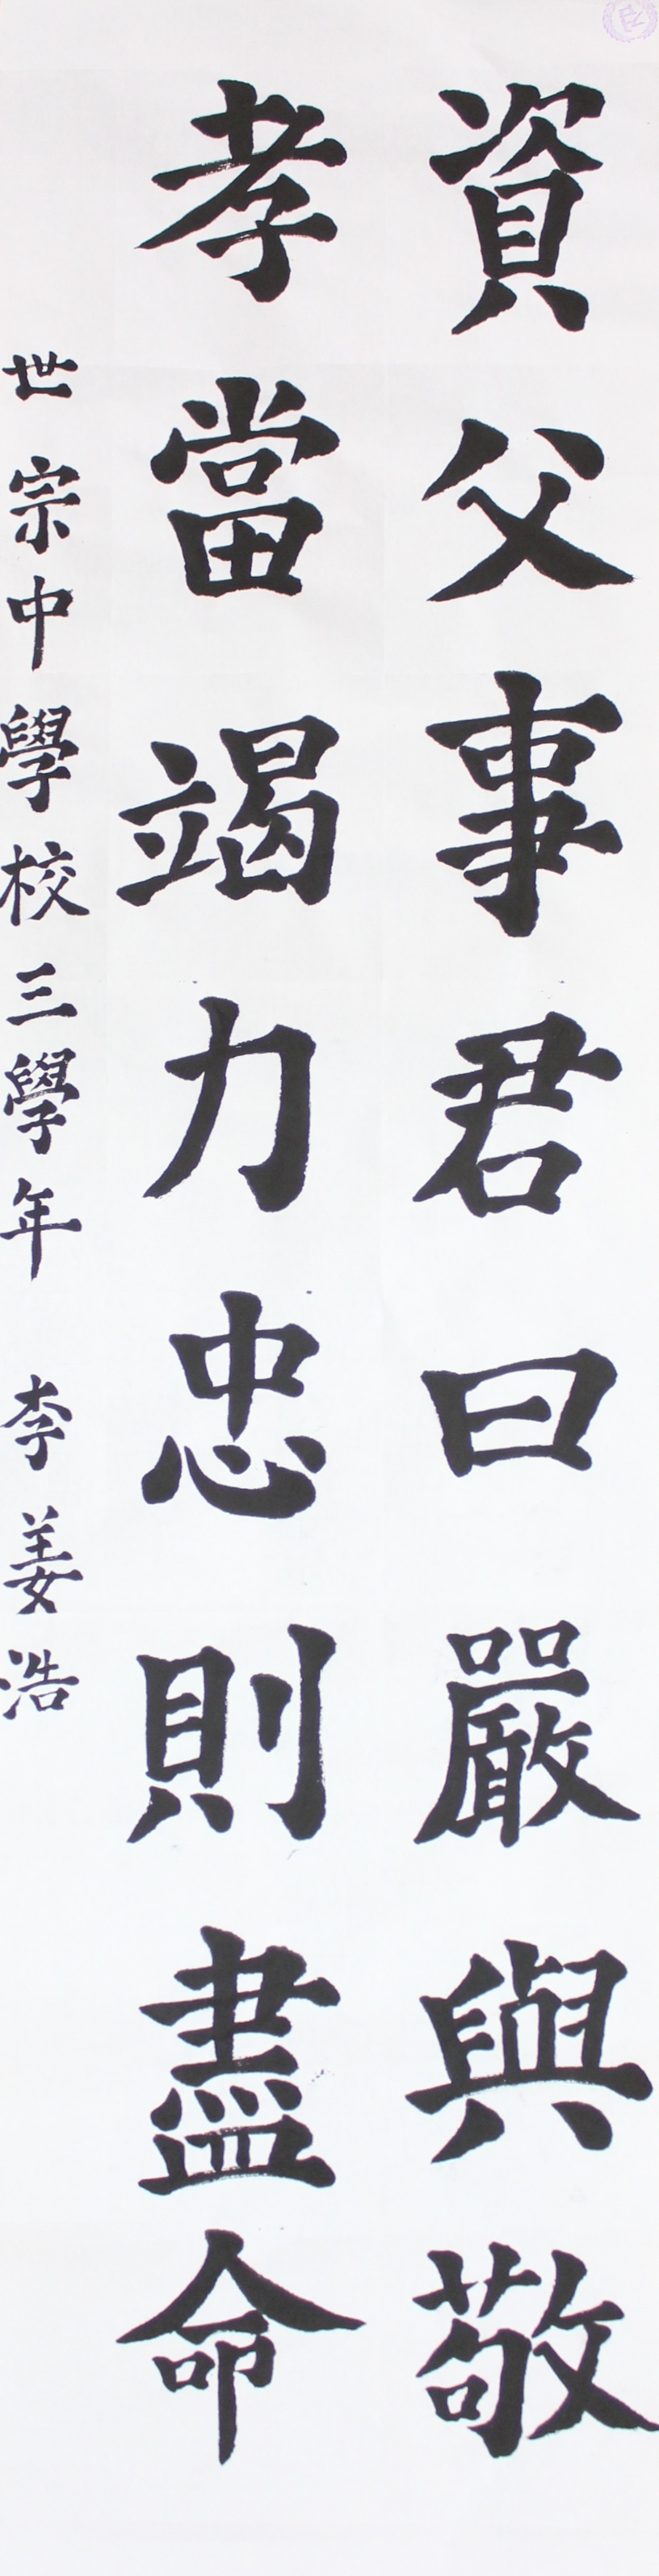 資父事君曰嚴與敬
孝當竭力忠則盡命
世宗中學校三學年 李姜浩